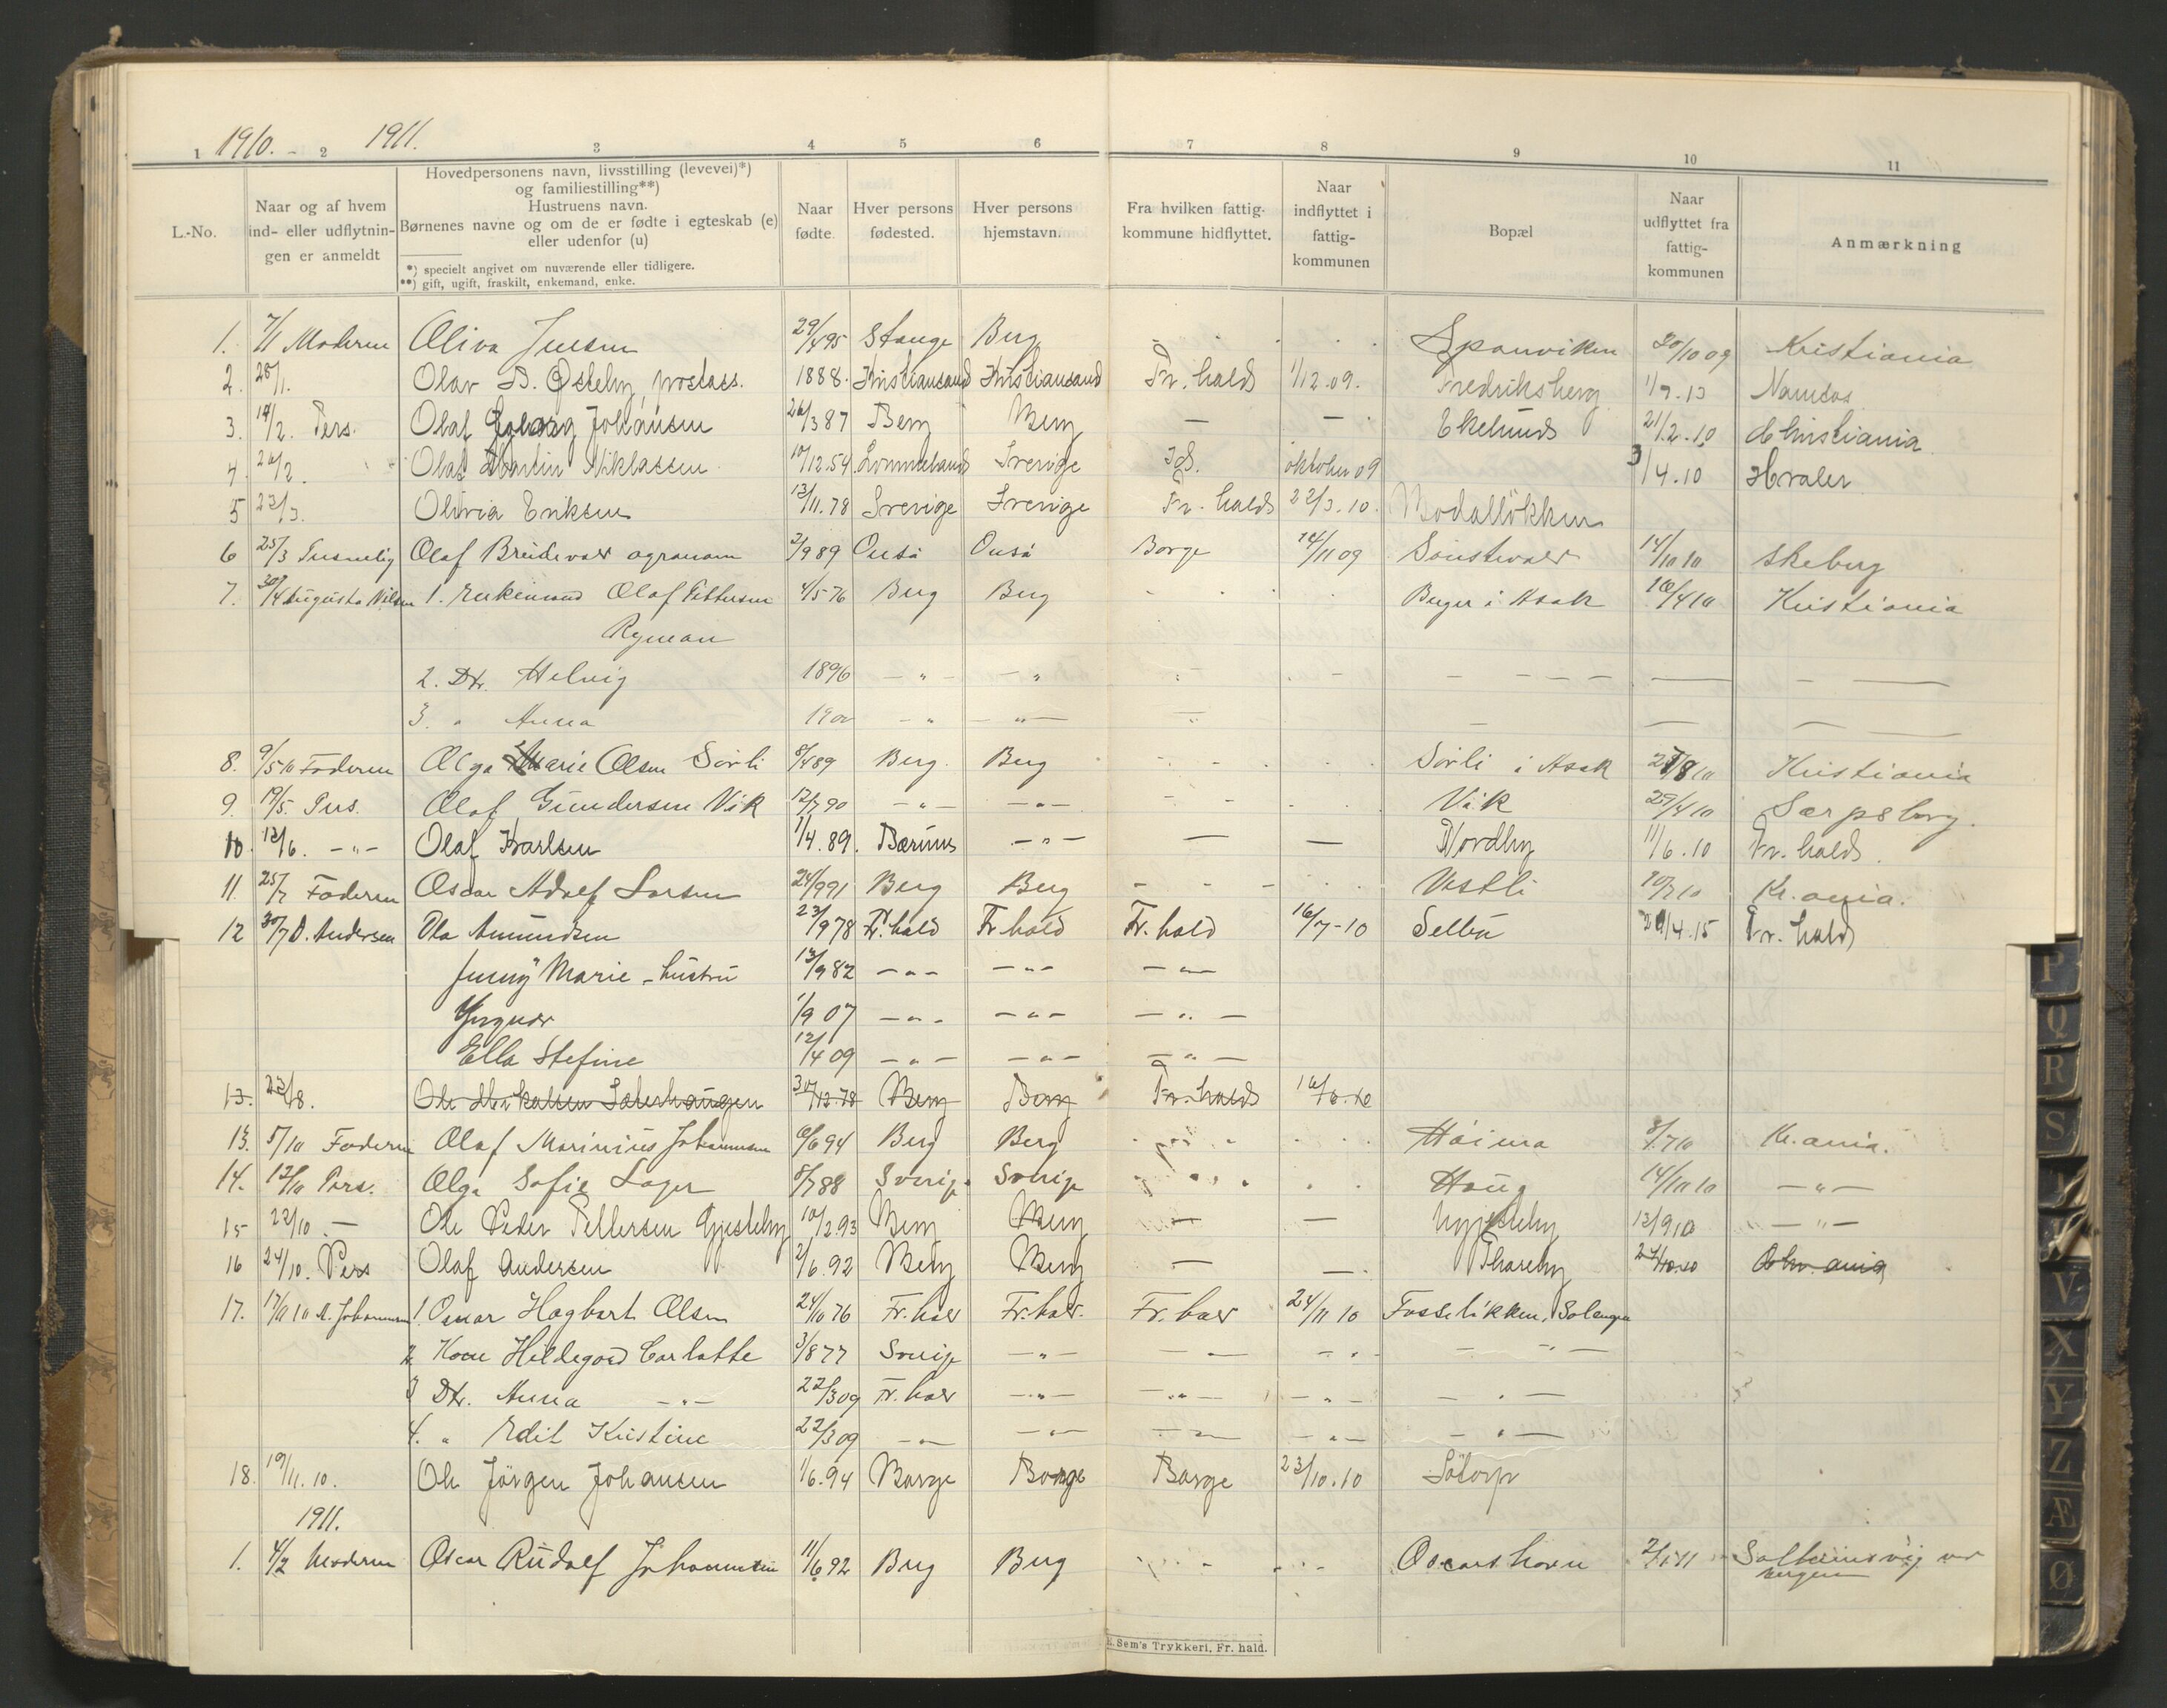 1910. - 1911.
1 2 3 4 5 6 7 8 9 10 11
L.-No. | Naar og af hvem ind- eller udflytnin- gen er anmeldt | Hovedpersonens navn, livsstilling (levevei)*) og familiestilling**) Hustruens navn. Børnenes navne og om de er fødte i egteskab (e) eller udenfor (u) *) specielt angivet om nuværende eller tidligere. **) gift, ugift, fraskilt, enkemand, enke. | Naar fødte. | Hver persons fødested. | Hver persons hjemstavn. | Fra hvilken fattig- kommune hidflyttet. | Naar indflyttet i fattig- kommunen | Bopæl | Naar udflyttet fra fattig- kommunen | Anmærkning
1. 7/1 Moderen Oliva Jensen 29/4 95 Stange Berg Sponviken 20/10 09 Kristiania
2. 28/1. Olav B. Østeby, postass. 1888. Kristiansand Kristiansand Fr.halds 1/12.09. Fredriksberg 1/9.13 Namsos
3. 14/2. Pers. Olaf Johansen 26/3 87 Berg Berg — — Ekelunds 21/2.10 Christiania
4. 26/2. Olaf Martin Niklassen 10/12.54 Sverige Ids. oktober 09 3/4.10 Hvaler
5 23/3. Olivia Eriksen 13/11.78 Sverige Sverige Fr.halds 22/3.10. Modalløkken
6 25/3 Olaf Breidevas agronom 2/9 89 Onsø Onsø Borge 14/11 09 14/10 10 Skeberg
7. 30/4 Augusta Nilsen 1. Enkemand Olaf Pettersen 4/5 76 Berg Berg Berger i Asak 16/4 10 Kristiania
Ryman
2. Dtr. Helvig 1896 — " — " — —
3. " Anna 1900 — " — " — — —
8. 9/5 10 Faderen Olga Marie Olsen Sørli 8/4 89 Berg. Berg Sørli i Asak 27/8 10 Kristiania
9. 19/5. Pers. Olaf Gundersen Vik 12/7 90 — " — — " — Vik 29/4 10 Sarpsborg.
10. 13/6. — " — Olaf Karlsen 1/4.89. Bærums — " — — — Nordby 11/6.10 Fr.halds.
11. 25/7 Faderen Oscar Adolf Larsen 24/9 91 Berg Berg Vestli 20/7 10 Kr.ania.
12 30/7 O. Andersen Ola Amundsen 23/9 78 Fr.hald Fr.hald Fr.hald 16/7-10 Selbu 29/4.15 Fr.hald
Jenny Marie - hustru 13/9 82 — " — — " — — " —
Yngvar 1/9 07 — " — — " — — " —
Ella Stefine 12/4 09 — " — — " — — " —
13. 22/8. Ole 30/12.78 Berg Berg Fr.halds 16/8.10
13. 5/10 Faderen Olaf Marinius Johannesen 6/6 94 Berg Berg Høiera 8/7 10 Kr.ania.
14. 12/10 Pers. Olga Sofie Lager 8/7 88 Sverige Sverige Haug 14/10 10 — " —
15 22/10. — Ole Peder Pettersen Gjesteby 10/2.93 Berg Berg — — Gjesteby 13/9 10 — " —
16 24/10. Pers Olaf Andersen 2/6.92 Berg Berg — — Thoreby 24/10.10 Chr.ania
17. 17/11 10 A. Johannesen 1. Oscar Hagbart Olsen 24/10 76 Fr.hald Fr.hald. Fr.hald 24/11 10 Fosseløkken, Solangen
2. Kone Hildegard Carlotte 3/8 77 Sverige — " — — " — — " — — " —
3 Dtr. Anna — " — 22/3 09 Fr.hald — " — — " — — " — — " —
4. " Edit Kristine 22/3 09 — " — — " — — " — — " — — " —
18. 19/11.10. Ole Jørgen Johansen 1/6.94 Borge Borge Borge 23/10.10 Søtorp
1911.
1. 4/2 Moderen Oscar Rudolf Johannesen 11/6 92 Berg Berg Oscarshavn 2/1 11
E. Sem's Trykkeri, Fr. hald.
P
Q
R
S
V
X
Y
Z
Æ
Ø